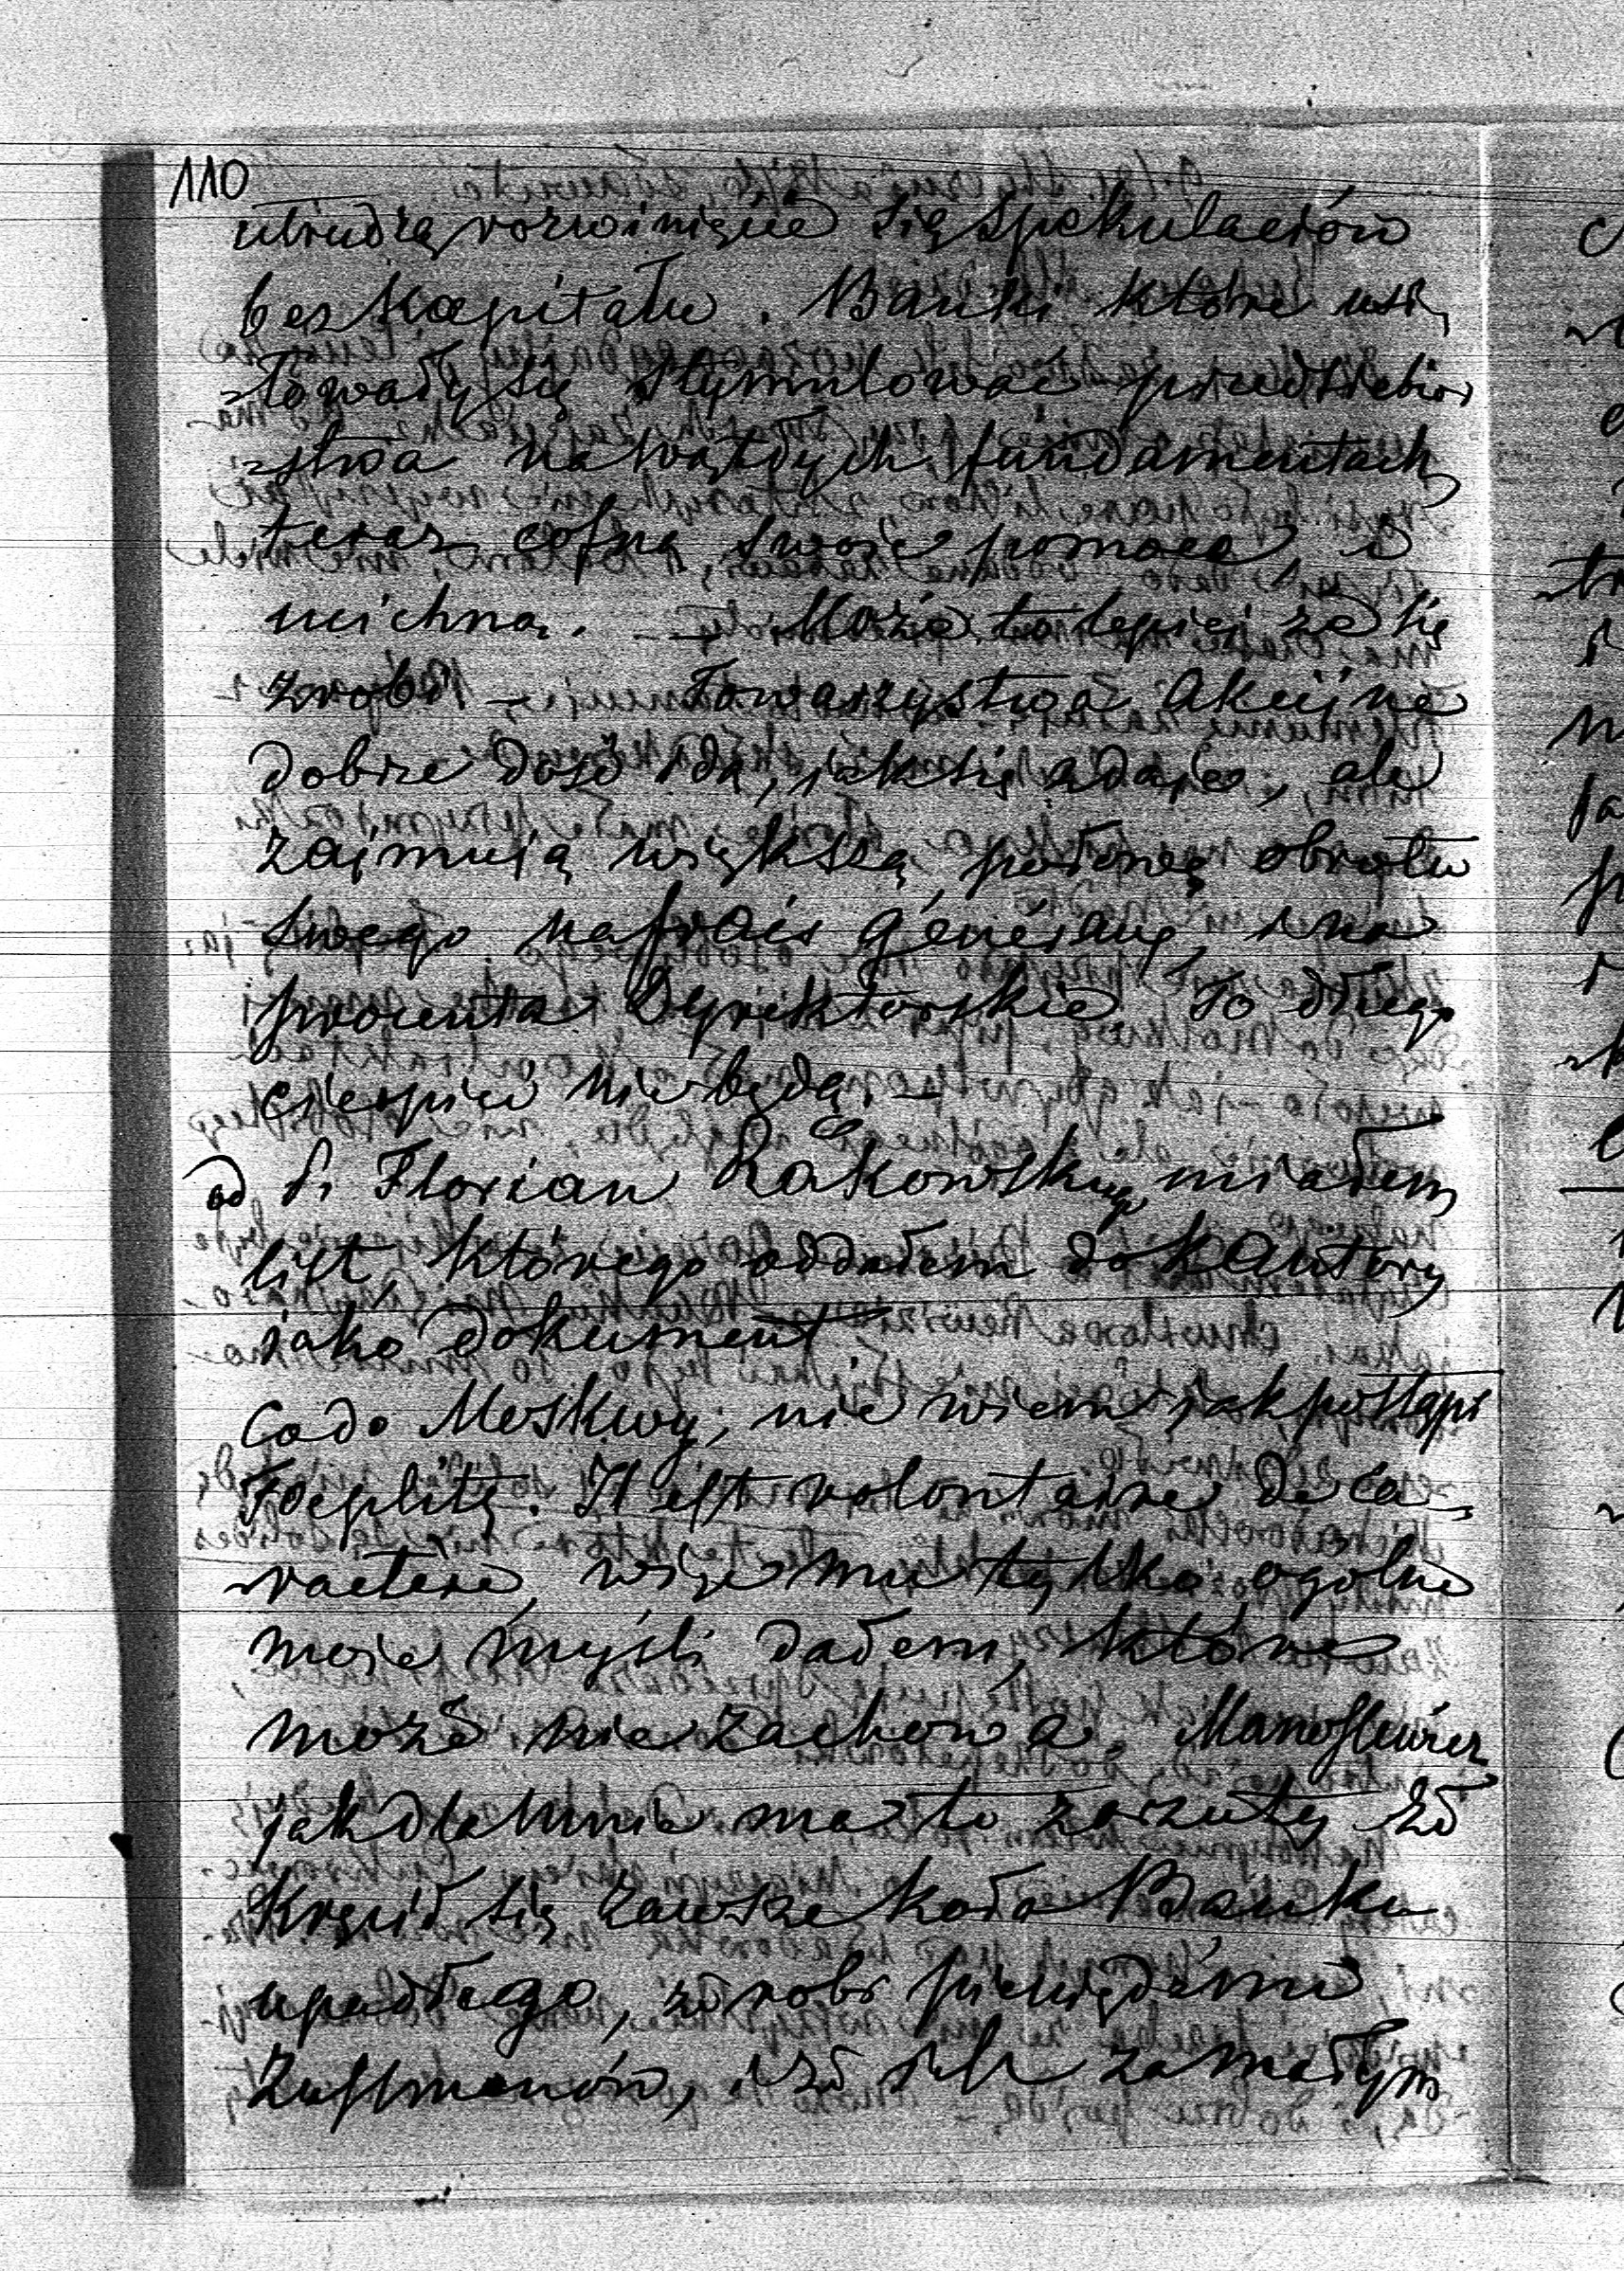 110
utrudzą rozwinięcie się spekulacion
bez kapitału. Banki które usi,
=łowały się stymulować przedsiebior
=stwa na wątłych fundamentach
teraz cofną swoie pomoce, i
ucichną. — Może to lepiej że się
zrobi — Towarzystwa Akcijne
dobrze dość idą, jak się zdaje, ale
zajmują większą połowę obrotu
swego na frais généraux, i na
procenta Dyrektorskie to długo
cierpieć nie będą. —
od P. Florian Rakowskiego miałem
list, którego oddałem do Kantory
jako dokument
Co do Moskwy, nie wiem jak postąpi
Toeplitz. Il est volontaire de ca=
ractere, więc mu tylko ogólne
moje myśli dałem, które
może nie zachowa.
jak dla mnie ma to zarzuty że
Kręcił się zawsze koło Banku
upadłego, że robi pieniędzmi
i że za małym